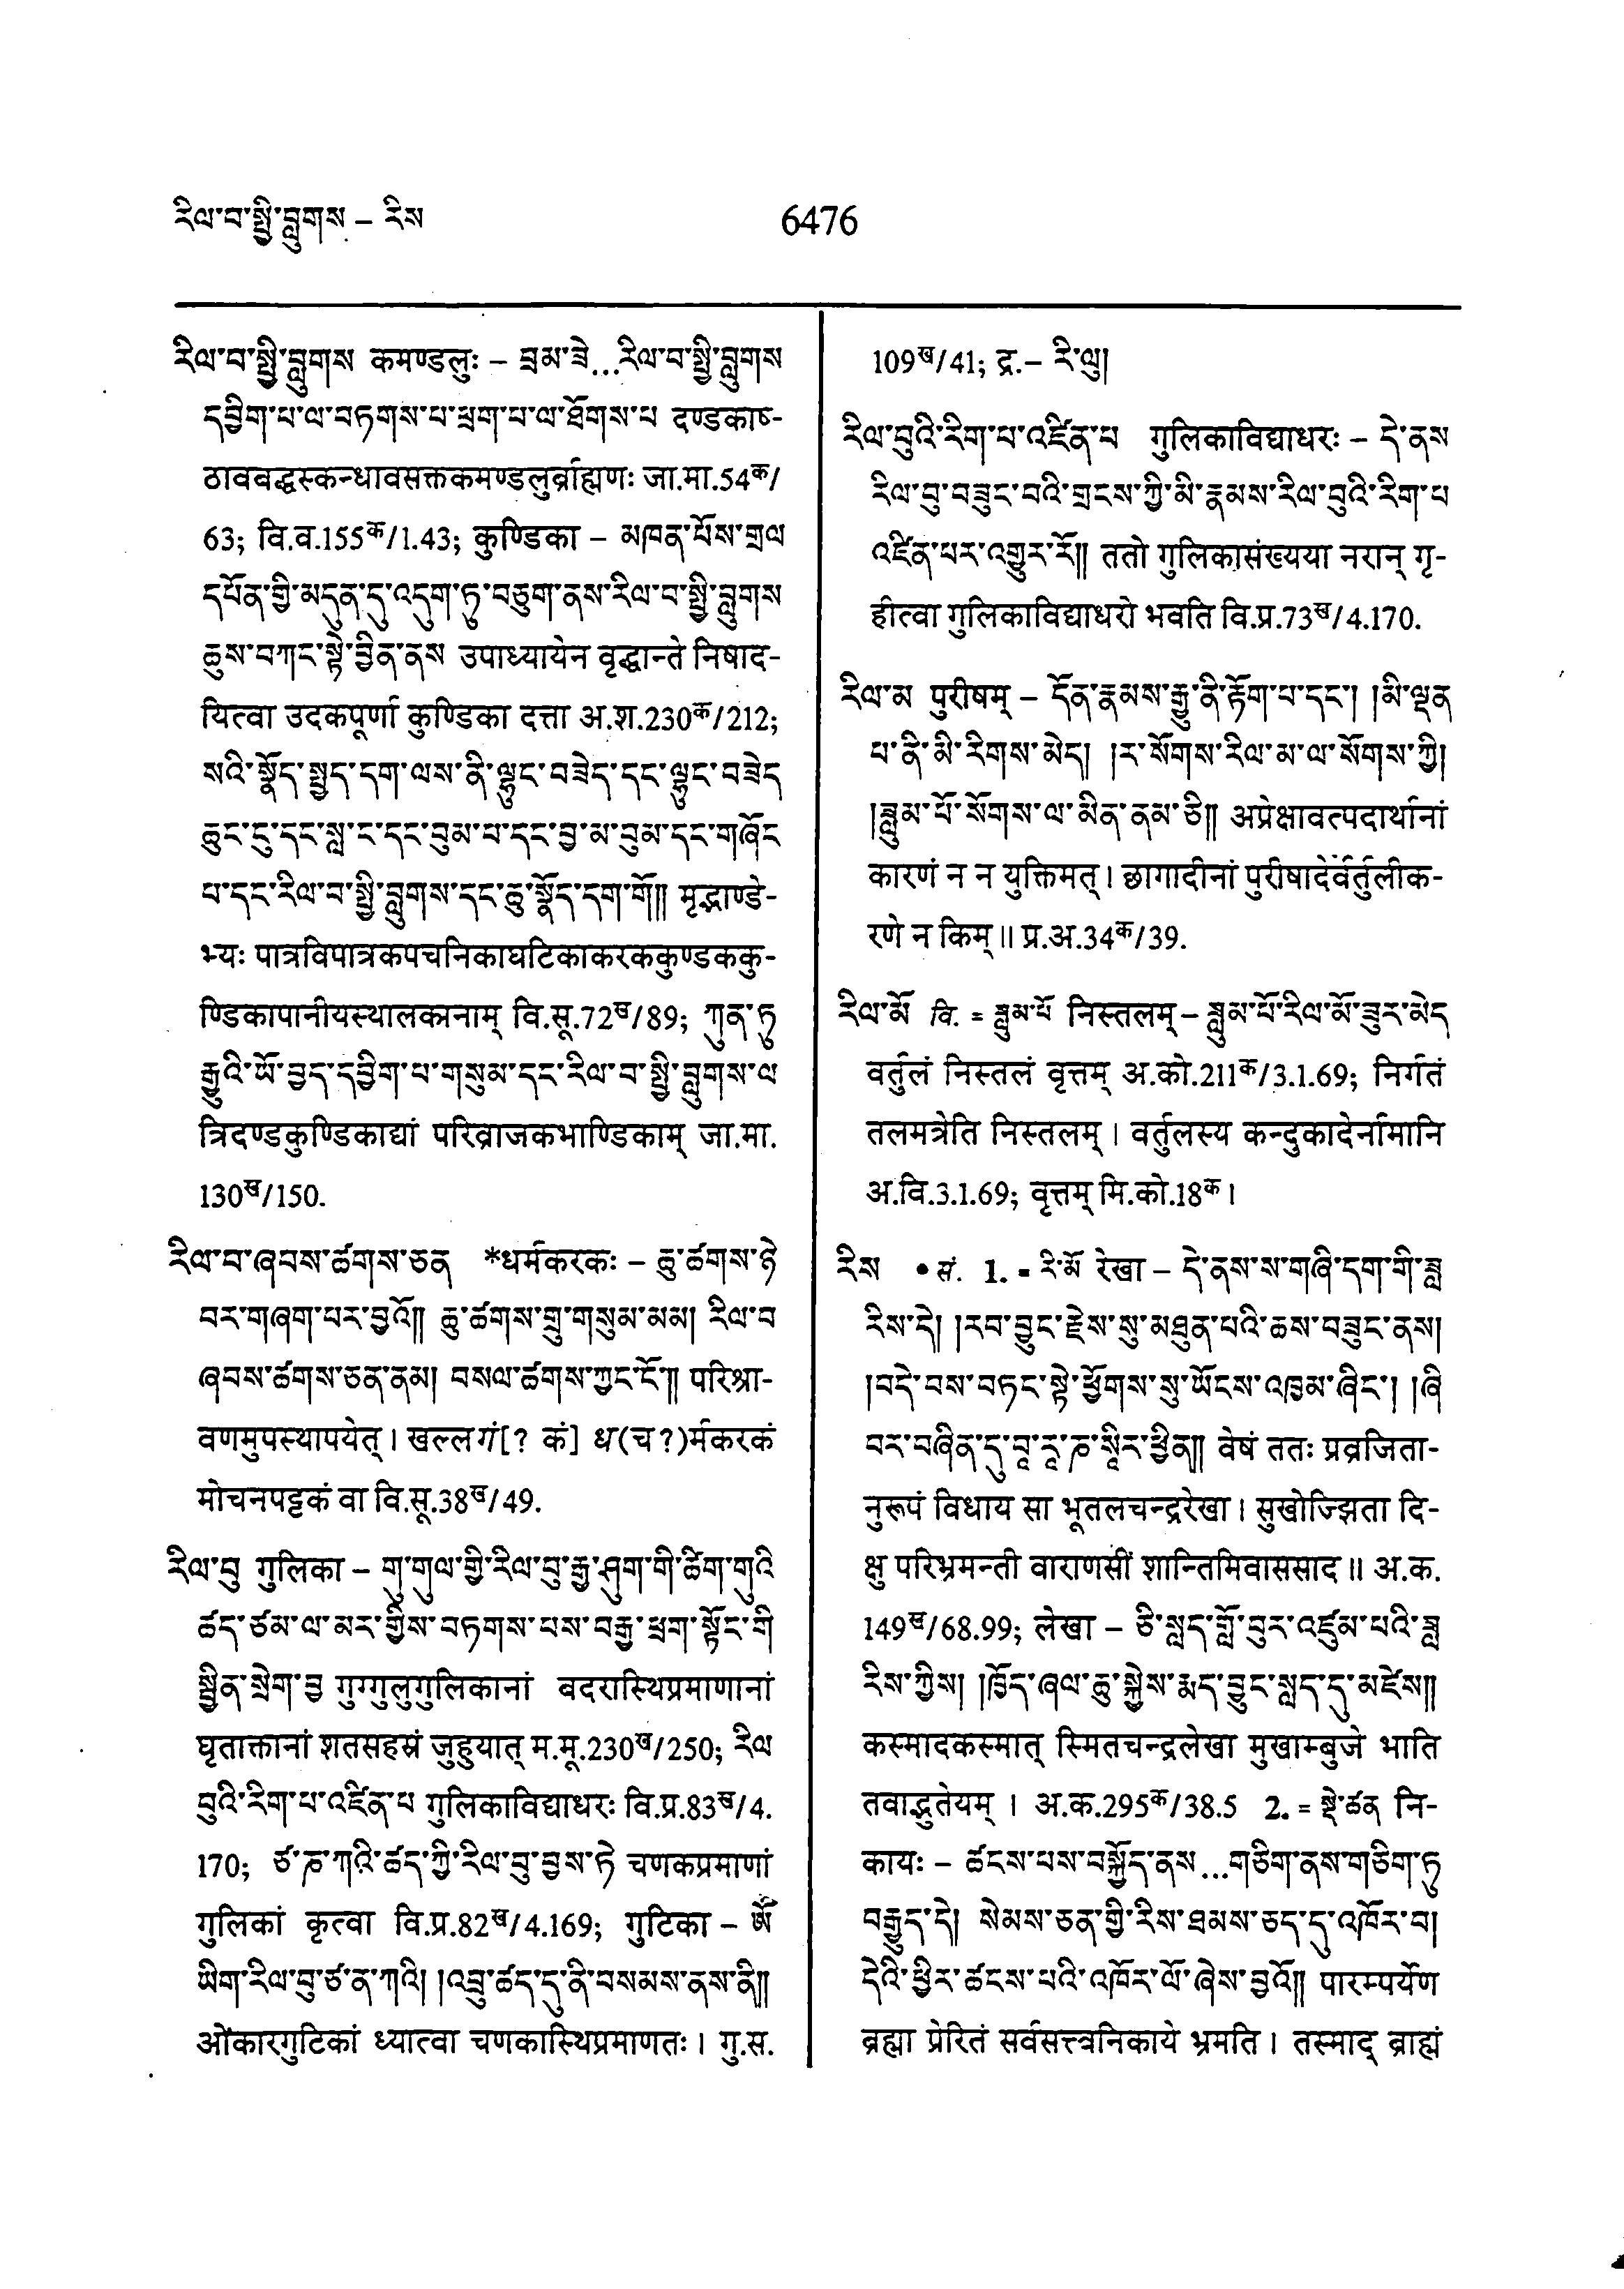 རིལ་བ་སྤྱི་བླུགས – རིས
6476
རིལ་བ་སྤྱི་བླུགས कमण्डलुः – བྲམ་ཟེ...རིལ་བ་སྤྱི་བླུགས
དབྱིག་པ་ལ་བཏགས་པ་ཕྲག་པ་ལ་ཐོགས་པ दण्डकाष-
ठाववद्धस्कन्धावसक्तकमण्डलुर्व्राह्मणः जा.मा.54क/
63; वि.व.155क/1.43; कुण्डिका – མཁན་པོས་གྲལ
དཔོན་གྱི་མདུན་དུ་འདུག་ཏུ་བཅུག་ནས་རིལ་བ་སྤྱི་བླུགས
ཆུས་བཀང་སྟེ་བྱིན་ནས उपाध्यायेन वृद्धान्ते निषाद-
यित्वा उदकपूर्णा कुण्डिका दत्ता अ.श.230क/212;
སའི་སྣོད་སྤྱད་དག་ལས་ནི་ལྷུང་བཟེད་དང་ལྷུང་བཟེད
ཆུང་ངུ་དང་སླ་ང་དང་བུམ་པ་དང་བྱ་མ་བུམ་དང་གཞོང
པ་དང་རིལ་བ་སྤྱི་བླུགས་དང་ཆུ་སྣོད་དག་གོ།། मृद्भाण्डे-
भ्यः पात्रविपात्रकपचनिकाघटिकाकरककुण्डककु-
ण्डिकापानीयस्थालकानाम् वि.सू.72ख/89; ཀུན་ཏུ
རྒྱུའི་ཡོ་བྱད་དབྱིག་པ་གསུམ་དང་རིལ་བ་སྤྱི་བླུགས་ལ
त्रिदण्डकुण्डिकाद्यां परिव्राजकभाण्डिकाम् जा.मा.
130ख/150.
རིལ་བ་ཞབས་ཚགས་ཅན *धर्मकरकः – ཆུ་ཚགས་ཉེ
བར་གཞག་པར་བྱའོ།། ཆུ་ཚགས་གྲུ་གསུམ་མམ། རིལ་བ
ཞབས་ཚགས་ཅན་ནམ། བསལ་ཚགས་ཀྱང་ངོ་།། परिश्रा-
वणमुपस्थापयेत्। खल्लगं[? कं] ध(च?)र्मकरकं
मोचनपट्टकं वा वि.सू.38ख/49.
རིལ་བུ गुलिका – གུ་གུལ་གྱི་རིལ་བུ་རྒྱ་ཤུག་གི་ཚིག་གུའི
ཚད་ཙམ་ལ་མར་གྱིས་བཏགས་པས་བརྒྱ་ཕྲག་སྟོང་གི
སྦྱིན་སྲེག་བྱ गुग्गुलुगुलिकानां बदरास्थिप्रमाणानां
घृताक्तानां शतसहस्रं जुहुयात् म.मू.230ख/250; རིལ
བུའི་རིག་པ་འཛིན་པ गुलिकाविद्याधरः वि.प्र.83ख/4.
170; ཙ་ཎ་ཀའི་ཚད་ཀྱི་རིལ་བུ་བྱས་ཏེ चणकप्रमाणां
गुलिकां कृत्वा वि.प्र.82ख/4.169; गुटिका – ཨོཾ
ཡིག་རིལ་བུ་ཙ་ན་ཀའི། །འབྲུ་ཚད་དུ་ནི་བསམས་ནས་ནི།།
ओंकारगुटिकां ध्यात्वा चणकास्थिप्रमाणतः। गु.स.
109ख/41; द्र.– རི་ལུ།
རིལ་བུའི་རིག་པ་འཛིན་པ गुलिकाविद्याधरः – དེ་ནས
རིལ་བུ་བཟུང་བའི་གྲངས་ཀྱི་མི་རྣམས་རིལ་བུའི་རིག་པ
འཛིན་པར་འགྱུར་རོ།། ततो गुलिकासंख्यया नरान् गृ-
हीत्वा गुलिकाविद्याधरो भवति वि.प्र.73ख/4.170.
རིལ་མ पुरीषम् – དོན་རྣམས་རྒྱུ་ནི་རྟོག་པ་དང་། །མི་ལྡན
པ་ནི་མི་རིགས་མེད། །ར་སོགས་རིལ་མ་ལ་སོགས་ཀྱི།
།ཟླུམ་པོ་སོགས་ལ་མིན་ནམ་ཅི།། अप्रेक्षावत्पदार्थानां
कारणं न न युक्तिमत्। छागादीनां पुरीषादेर्वर्तुलीक-
रणे न किम्॥ प्र.अ.34क/39.
རིལ་མོ वि. = ཟླུམ་པོ निस्तलम् – ཟླུམ་པོ་རིལ་མོ་ཟུར་མེད
वर्तुलं निस्तलं वृत्तम् अ.को.211क/3.1.69; निर्गतं
तलमत्रेति निस्तलम्। वर्तुलस्य कन्दुकादेर्नामानि
अ.वि.3.1.69; वृत्तम् मि.को.18क।
རིས • सं. 1. = རི་མོ रेखा – དེ་ནས་ས་གཞི་དག་གི་ཟླ
རིས་དེ། །རབ་བྱུང་རྗེས་སུ་མཐུན་པའི་ཆས་བཟུང་ནས།
།བདེ་བས་བཏང་སྟེ་ཕྱོགས་སུ་ཡོངས་འཁྱམ་ཞིང་། །ཞི
བར་བཞིན་དུ་བཱ་རཱ་ཎ་སཱིར་ཕྱིན།། वेषं ततः प्रव्रजिता-
नुरूपं विधाय सा भूतलचन्द्ररेखा। सुखोज्झिता दि-
क्षु परिभ्रमन्ती वाराणसीं शान्तिमिवाससाद॥ अ.क.
149ख/68.99; लेखा – ཅི་སླད་གློ་བུར་འཛུམ་པའི་ཟླ
རིས་ཀྱིས། །ཁྱོད་ཞལ་ཆུ་སྐྱེས་རྨད་བྱུང་སླད་དུ་མཛེས།།
कस्मादकस्मात् स्मितचन्द्रलेखा मुखाम्बुजे भाति
तवाद्भुतेयम्। अ.क.295क/38.5 2. = སྡེ་ཚན नि-
कायः – ཚངས་པས་བསྐྱོད་ནས...གཅིག་ནས་གཅིག་ཏུ
བརྒྱུད་དེ། སེམས་ཅན་གྱི་རིས་ཐམས་ཅད་དུ་འཁོར་བ།
དེའི་ཕྱིར་ཚངས་པའི་འཁོར་ལོ་ཞེས་བྱའོ།། पारम्पर्येण
व्रह्मा प्रेरितं सर्वसत्त्वनिकाये भ्रमति। तस्माद् व्राह्मं